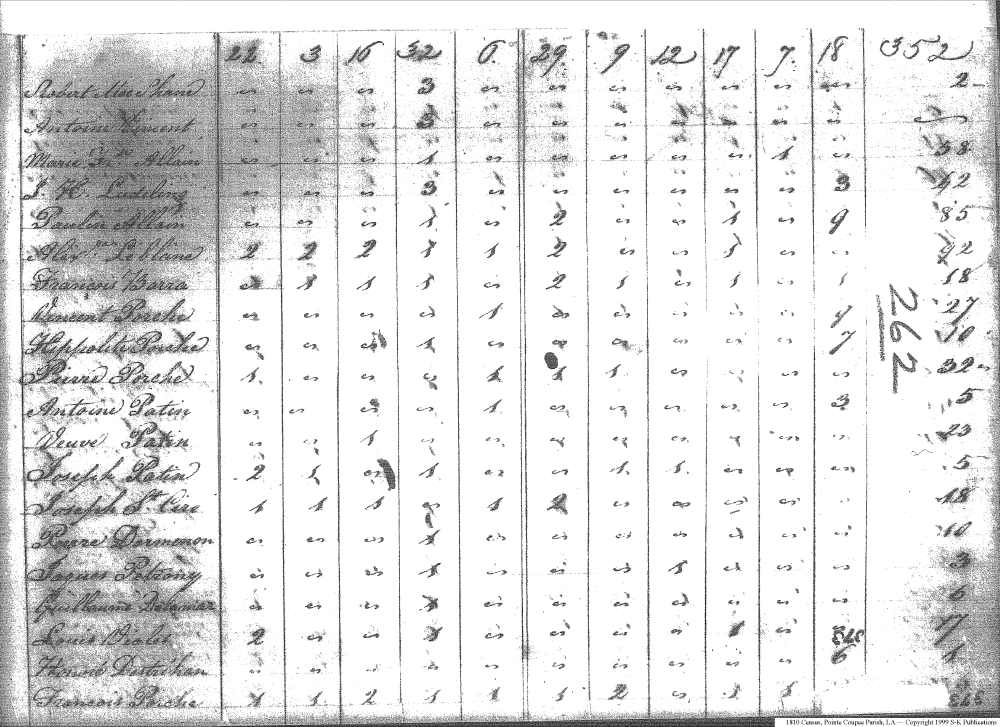 22 3 16 32 6 29 9 12 17 7 18 352
Robert 3 2
Antoine 3
Marie Allain 1 1 58
J. H. Ludeling 3 3 42
Paulin Allain 1 2 1 9 85
Alex Leblanc 2 2 2 1 1 2 1 92
Francois Barra 1 1 1 2 1 1 1 1 18
Vincent Porche 1 27
Hippolite Porche 1 7 10
Pierre Porche 1 1 1 1 32
Antoine Patin 1 3 5
Veuve Patin 1 23
Joseph Patin 2 1 1 1 1 5
Joseph St Cire 1 1 1 1 2 18
Pierre Dormenon 1 10
1 1 3
Guillaume 1 6
Louis 2 1 17
Honoré Destrehan 6 1
Francois Porche 1 1 2 1 1 1 2 1 1
262
1810 Census, Pointe Coupee Parish, LA — Copyright 1999 S-K Publications